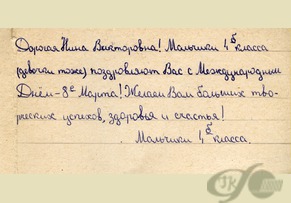 Дорогая Нина Викторовна! Мальчики 4 б класса
(девочки тоже) поздравляют Вас с Международным
Днём - 8е Марта! Желаем Вам больших твор-
ческих успехов, здоровья и счастья!
Мальчики 4 б класса.